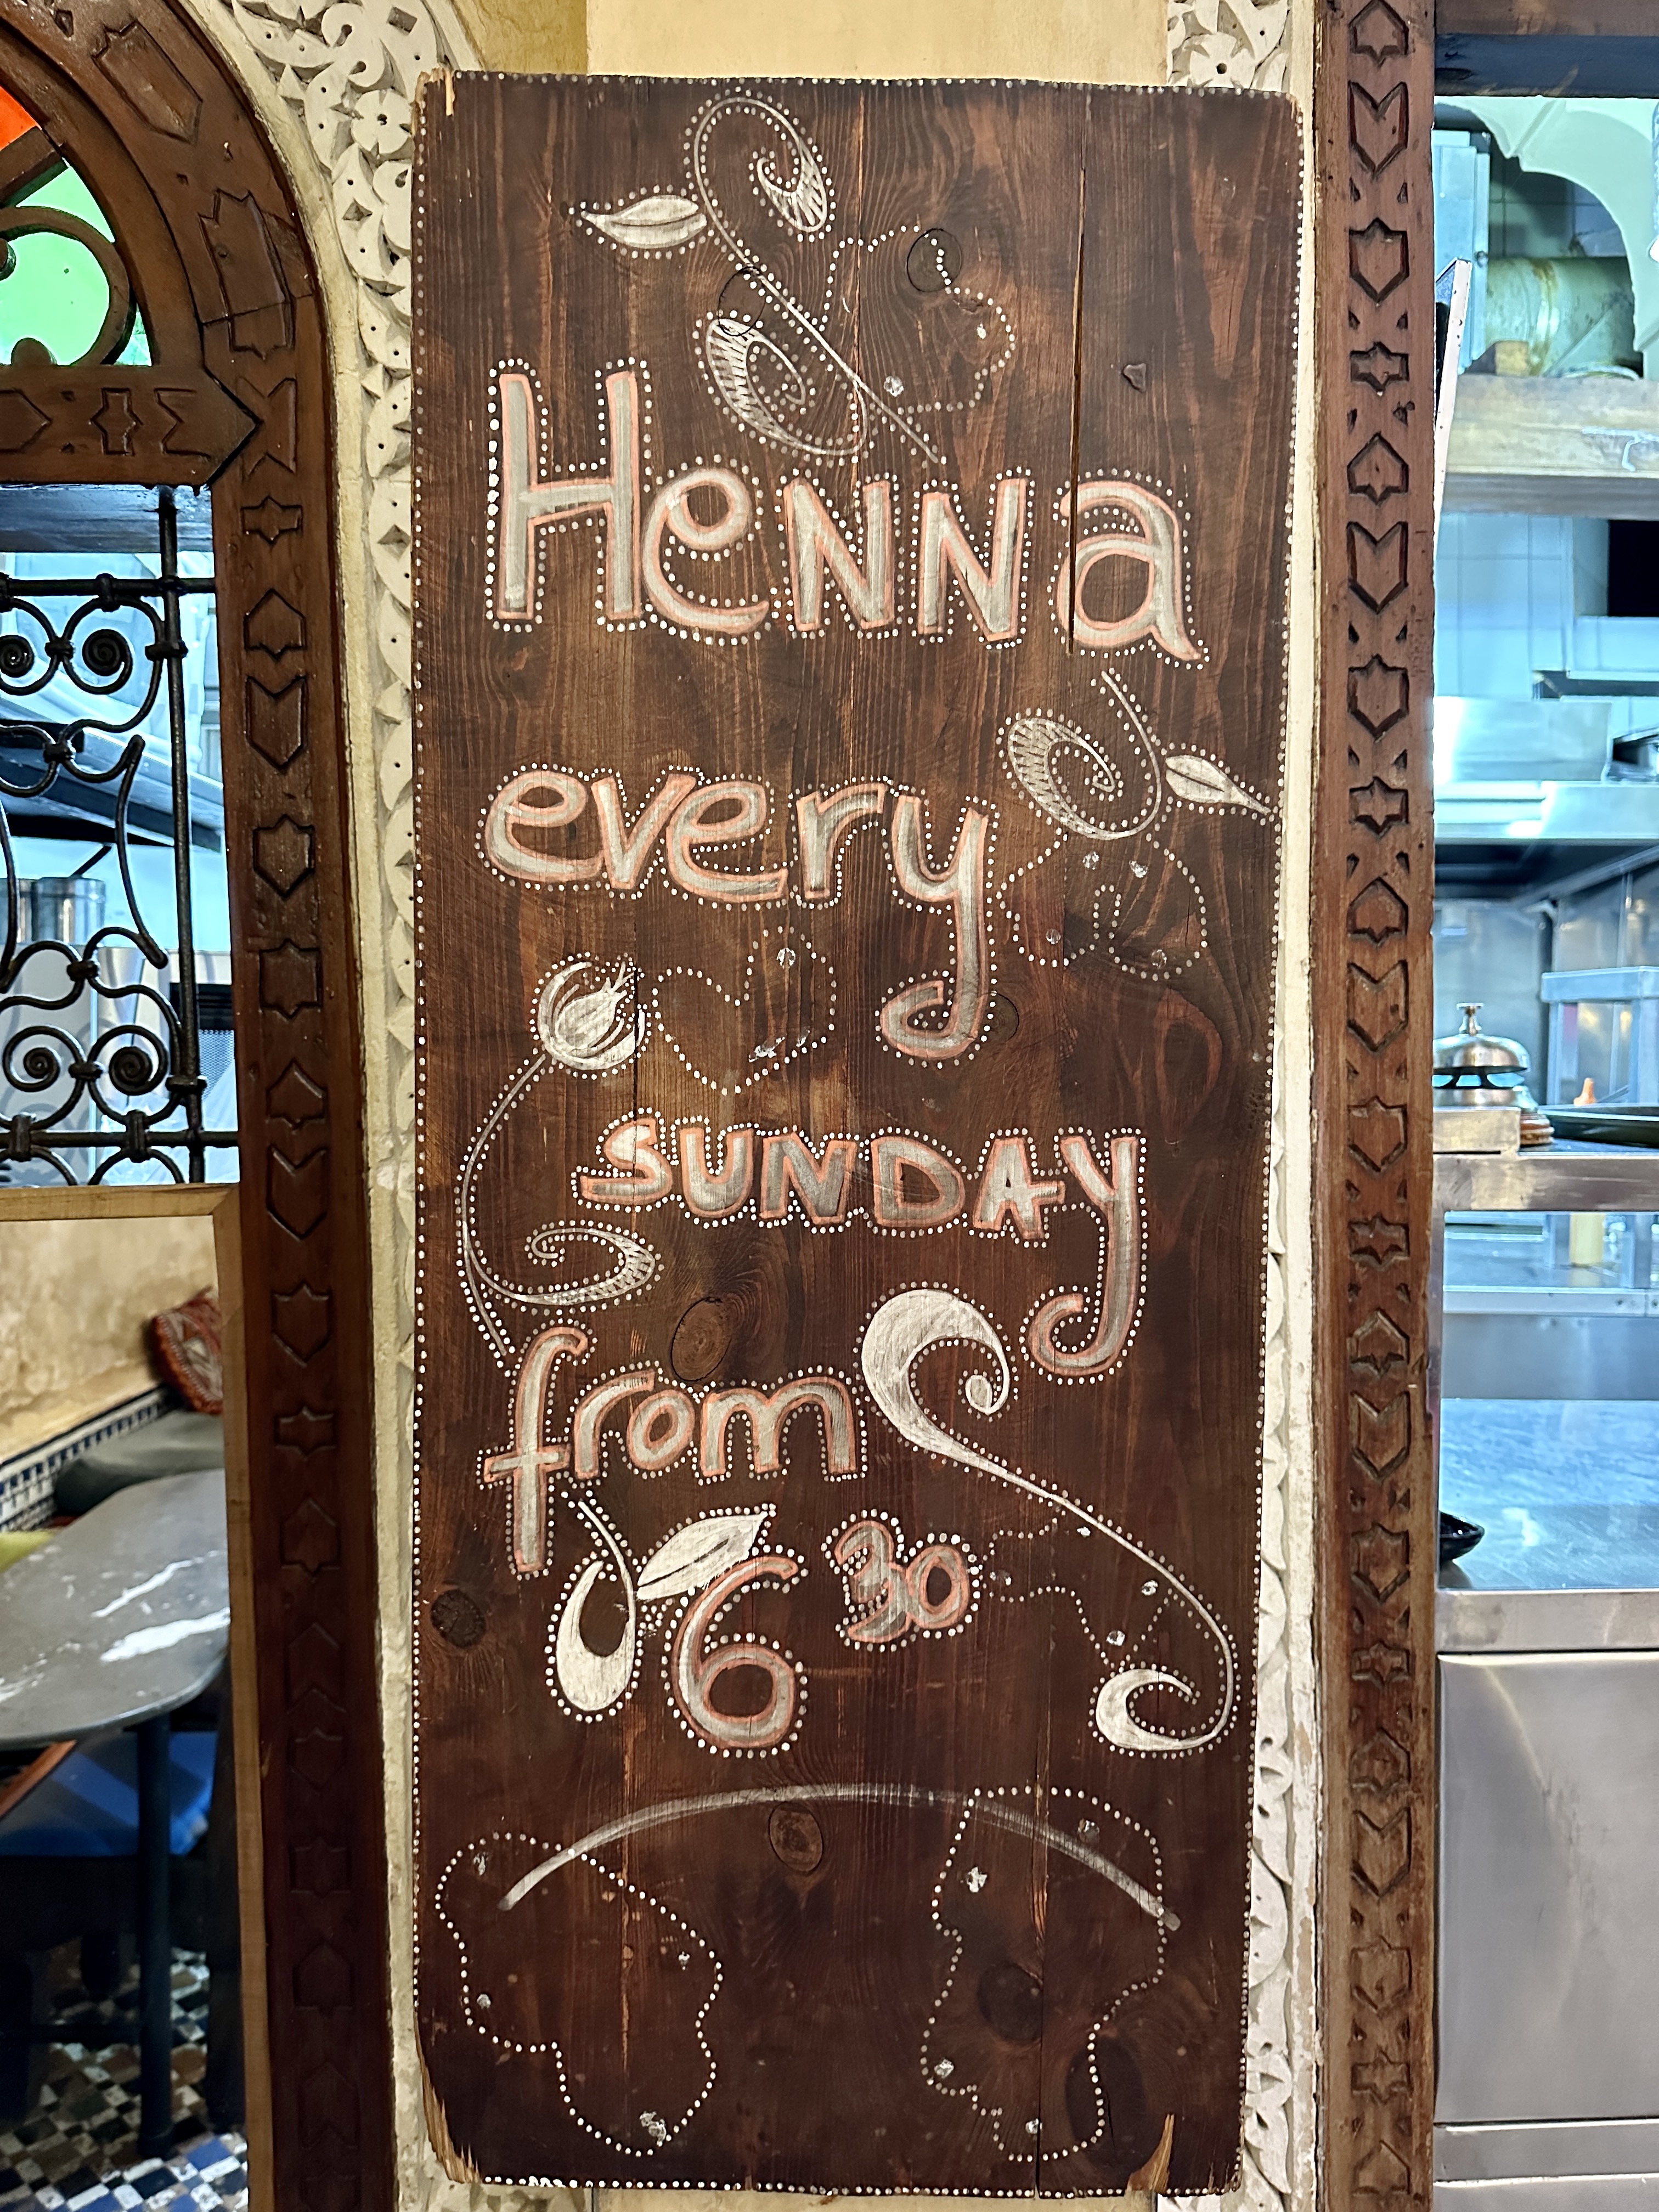 Henna
every
SUNDAY
from
6 30